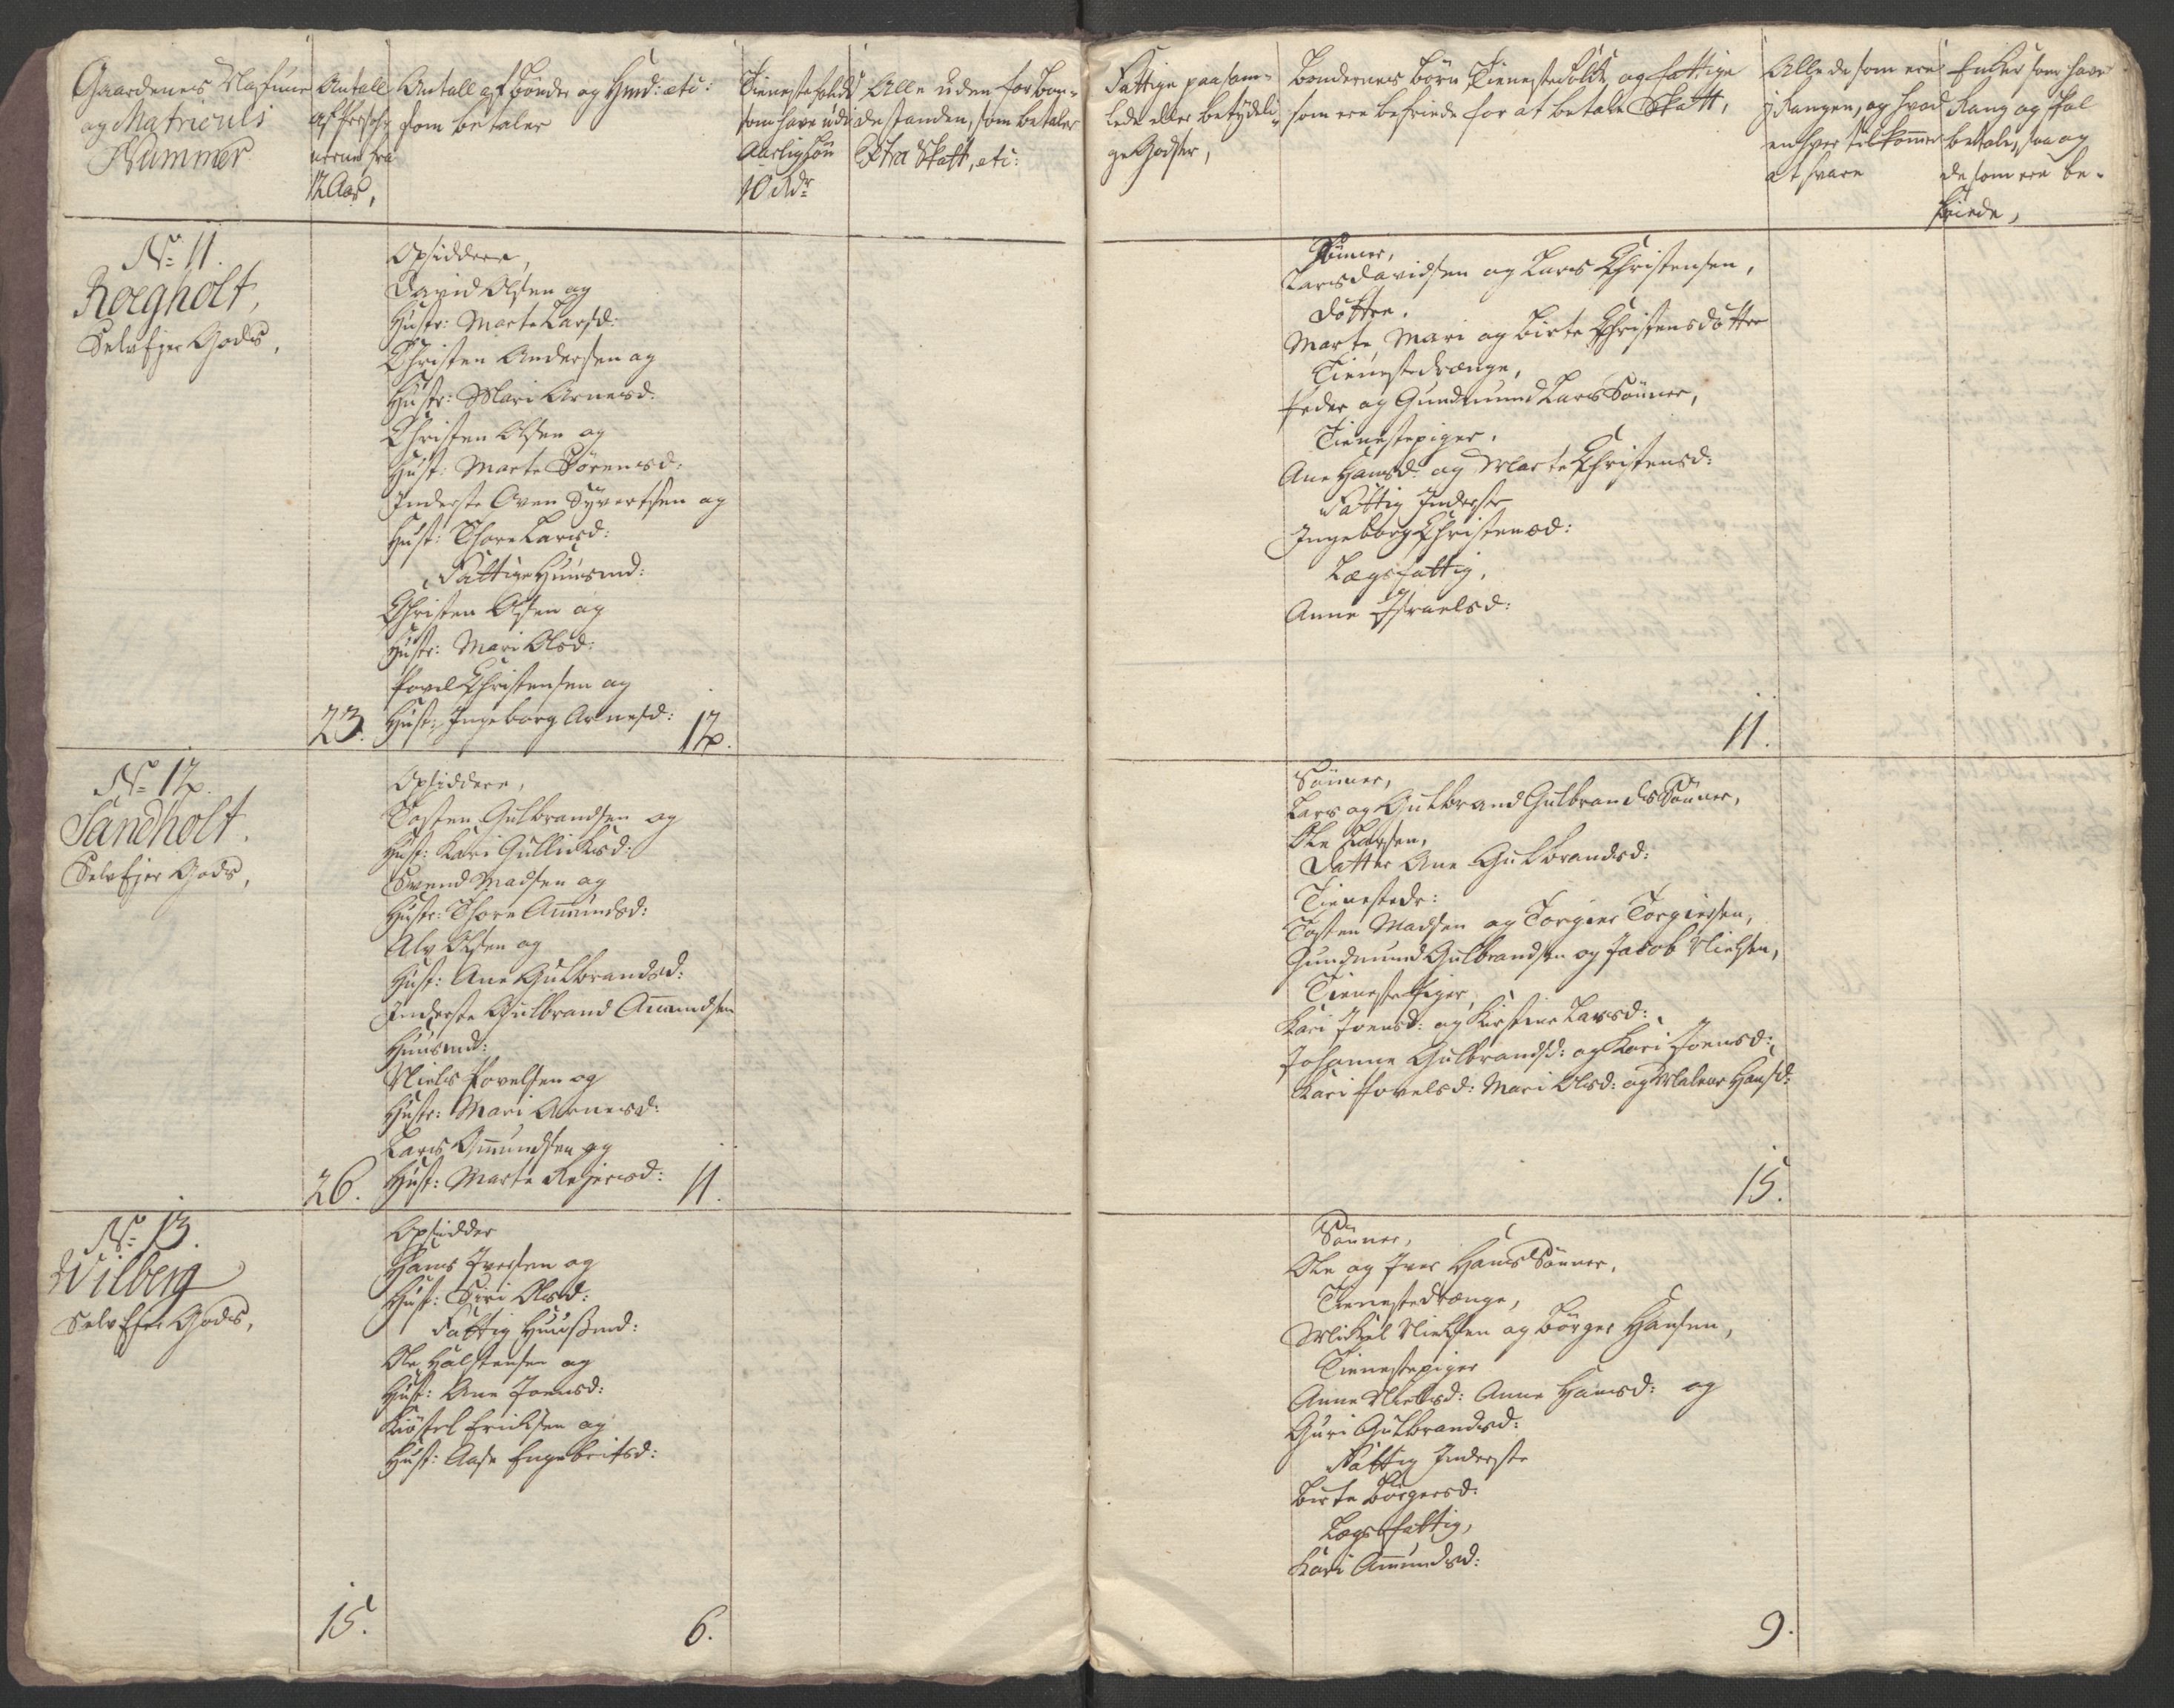 Gaardenes Nafune
og Matriculs
Nummer
Antall
af Persoh
nerne fra
12 Aar,
Antall af Bønder og Hmd: etc:
som betaler
Tienestefolck
som have
Aarlig Løn
10 Rdr
Alle uden for Bon-
destanden, som betaler
Extra Skatt, etc:
Fattige paa sam-
lede eller betydeli-
ge Godser,
Bondernes Børn, Tienestefolck og fattige
som ere befriede for at betale Skatt,
Alle de som ere
i Rangen, og hvad
enhver tilkommer
at svare
Enker som have
Rang og skal
betale, saa og
de som ere be-
friede,
No 11.
Roegholt,
Selv Ejer Gods,
23.
Opsiddere,
David Olsen og
Hustr: Marte Larsd:
Christen Andersen og
Hustr: Mari Arnesd:
Christen Olsen og
Hust: Marte Sørensd:
Inderste Even Syvertsen og
Hust: Thore Larsd:
Fattige Huusmd:
Christen Olsen og
Hustr: Mari Olsd:
Povel Christensen og
Hust: Ingeborg Arnesd:
12.
Sønner,
Lars Davidsen og Lars Christensen,
Døttre,
Marte, Mari og Birte Christensdøttre
Tienestedrænge,
Peder og Gundmund Lars Sønner,
Tienestepiger,
Ane Hansd: og Marte Christensd:
Fattig Inderste
Ingeborg Christensd:
Lægsfattig,
Anne Israelsd:
11.
No 12.
Sandholt.
Selv Ejer Gods,
26.
Opsiddere,
Tosten Gulbrandsen og
Hust: Kari Gullichsd:
Svend Madsen og
Hustr: Thore Amundsd:
Alv Olsen og
Hust: Ane Gulbrandsd:
Inderste Gulbrand Amundsen
Huusmd:
Niels Povelsen og
Hustr: Mari Arnesd:
Lars Amundsen og
Hust: Marte Rejersd:
11.
Sønner,
Lars og Gulbrand Gulbrands Sønner,
Ole Larsen,
Datter Ane Gulbrandsd:
Tienestedr:
Tosten Madsen og Torgier Torgiersen,
Gundmund Gulbrandsen og Jacob Nielsen,
Tienestepiger,
Kari Joensd: og Kirstine Larsd:
Johanne Gulbrandsd: og Kari Joensd:
Kari Povelsd: Mari Olsd: og Malene Hansd:
15.
No 13.
Wilberg
Selv Ejer Gods,
15.
Opsidder
Hans Iversen og
Hust: Siri Olsd:
Fattig Huusmd:
Ole Halstensen og
Hust: Ane Joensd:
Kiøstel Erichsen og
Hust: Aase Engebretsd:
6.
Sønner,
Ole og Iver Hans Sønner,
Tienestedrænge,
Michel Nielsen og Børger Hansen,
Tienestepiger
Anne Nielsd: Anne Hansd: og
Guri Gulbrandsd:
Fattig Inderste
Birte Børgersd:
Lægsfattig,
Kari Amundsd:
9.